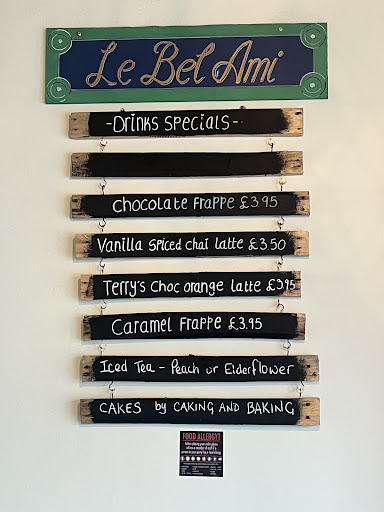 Le Bel Ami
-Drinks Specials-
Chocolate Frappe £3.95
Vanilla Spiced chai latte £3.50
Terry's Choc orange latte £3.95
Caramel Frappe £3.95
Iced Tea - Peach or Elderflower
CAKES by CAKING AND BAKING
FOOD ALLERGY?